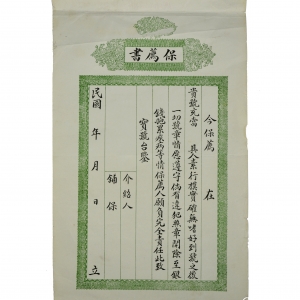 保薦書
今保薦 在
貴號充當 其人素行樸實確無嗜好到號之後
一切號章情愿遵守倘有違犯照章開除至銀
錢拖累疾病等情保薦人願負完全責任此致
寶號台鑒
介紹人
鋪保
民國 年 月 日 立